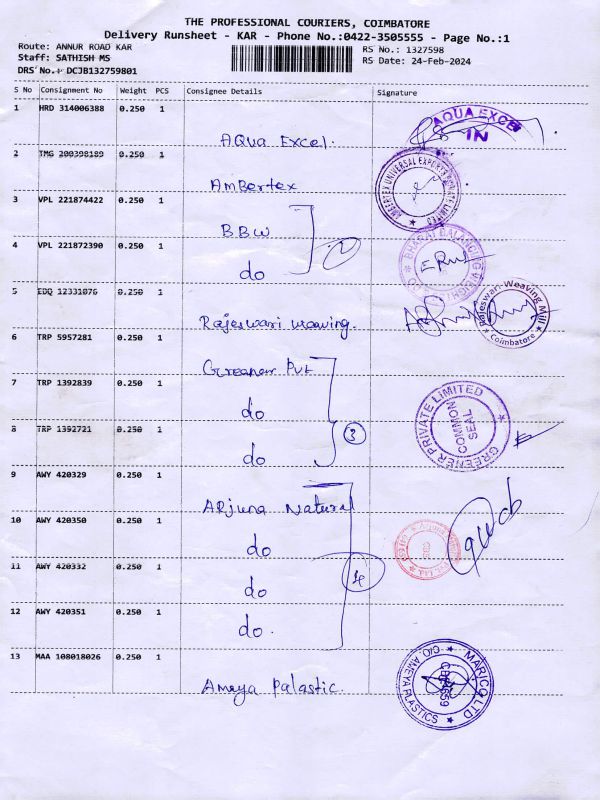 THE PROFESSIONAL COURIERS, COIMBATORE
Delivery Runsheet - KAR - Phone No.:0422-3505555 - Page No.:1
Route: ANNUR ROAD KAR RS No.: 1327598
Staff: SATHISH MS RS Date: 24-Feb-2024
DRS No.: DCJB132759801
S No Consignment No Weight PCS Consignee Details Signature
1 HRD 314006388 0.250 1
AQua Excel. AQUA EXCEL
IN
2 TMG 200398189 0.250 1
AmBertex AMBERTEX UNIVERSAL EXPORTS PRIVATE LIMITED
3 VPL 221874422 0.250 1
BBW 2
4 VPL 221872390 0.250 1
do BHARAT BALANCING WEIGHT CO
5 EDQ 12331076 0.250 1
Rajeswari weaving. Rajeswari Weaving Mill
Coimbatore
6 TRP 5957281 0.250 1
Greener Pvt
7 TRP 1392839 0.250 1
do GREENER PRIVATE LIMITED
COMMON
SEAL
8 TRP 1392721 0.250 1
do 3
9 AWY 420329 0.250 1
Arjuna Natural
10 AWY 420350 0.250 1
do
11 AWY 420332 0.250 1
do 4
12 AWY 420351 0.250 1
do.
13 MAA 108018026 0.250 1
Ameya Palastic. MARICO LTD
C/O. AMEYA PLASTICS